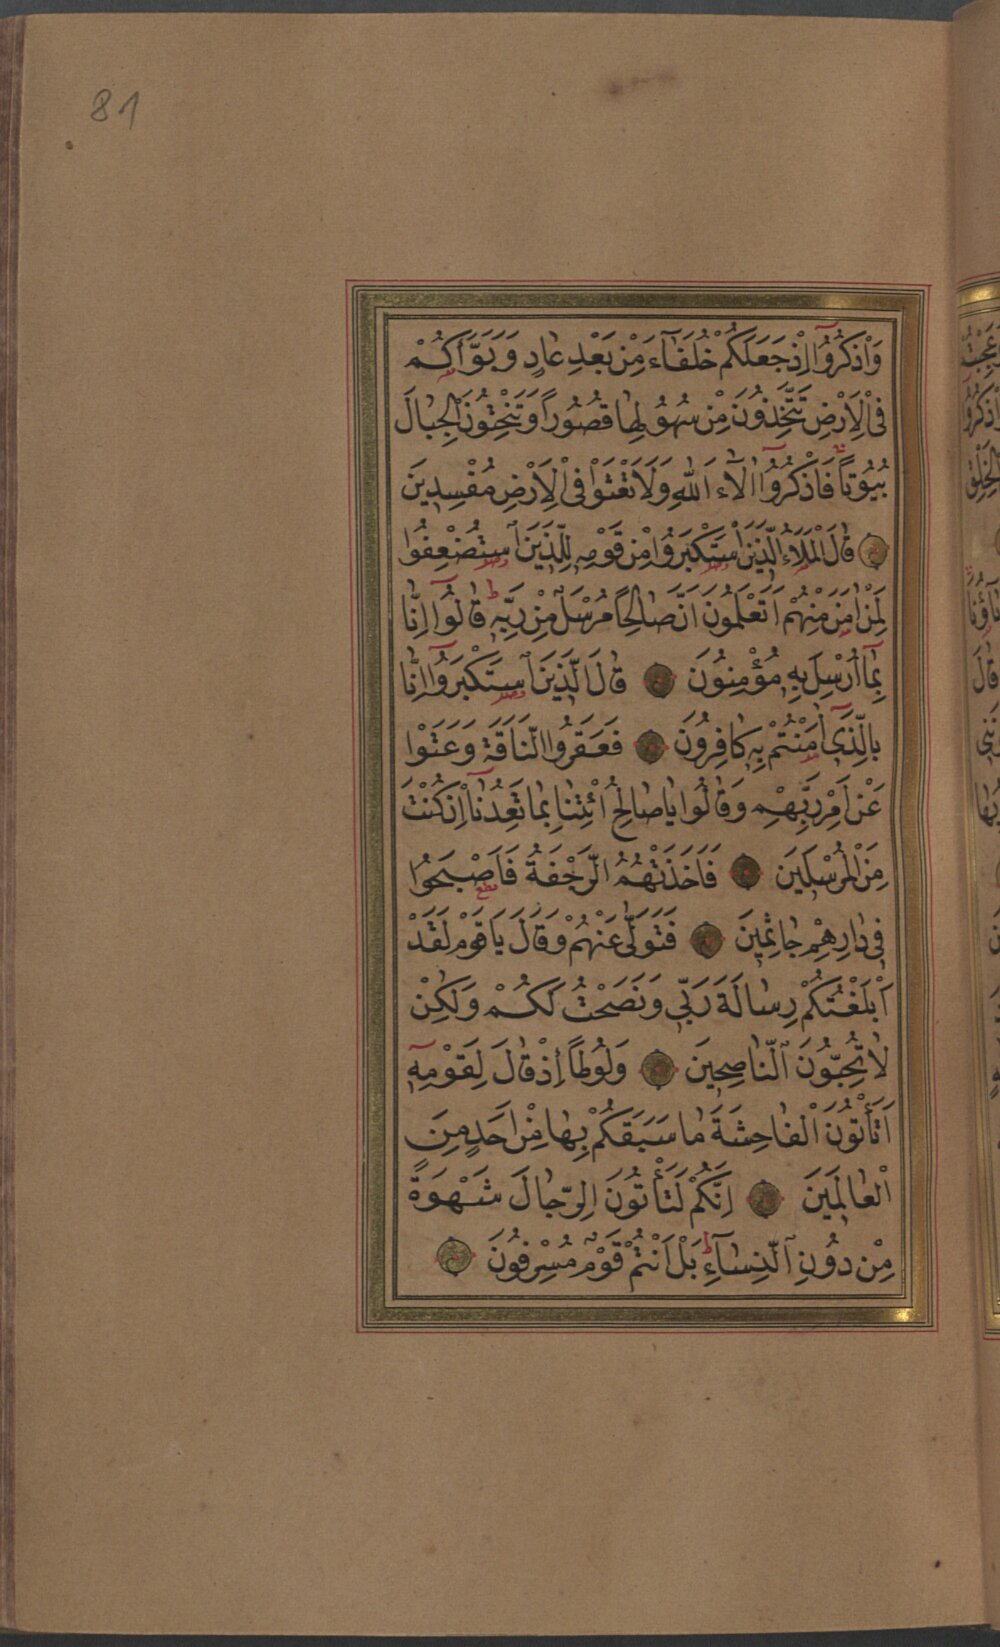 81
وَاذْكُرُوٓا اِذْ جَعَلَكُمْ خُلَفَآءَ مِنْ بَعْدِ عَادٍ وَبَوَّاَكُمْ
فِى الْاَرْضِ تَتَّخِذُونَ مِنْ سُهُولِهَا قُصُورًا وَتَنْحِتُونَ الْجِبَالَ
بُيُوتًا فَاذْكُرُوٓا اٰلَآءَ اللّٰهِ وَلَا تَعْثَوْا فِى الْاَرْضِ مُفْسِدِينَ
قَالَ الْمَلَاُ الَّذِينَ اسْتَكْبَرُوا مِنْ قَوْمِهِ لِلَّذِينَ اسْتُضْعِفُوا
لِمَنْ اٰمَنَ مِنْهُمْ اَتَعْلَمُونَ اَنَّ صَالِحًا مُرْسَلٌ مِنْ رَبِّهِ قَالُوٓا اِنَّا
بِمَآ اُرْسِلَ بِهِ مُؤْمِنُونَ قَالَ الَّذِينَ اسْتَكْبَرُوٓا اِنَّا
بِالَّذِىٓ اٰمَنْتُمْ بِهِ كَافِرُونَ فَعَقَرُوا النَّاقَةَ وَعَتَوْا
عَنْ اَمْرِ رَبِّهِمْ وَقَالُوا يَا صَالِحُ ائْتِنَا بِمَا تَعِدُنَآ اِنْ كُنْتَ
مِنَ الْمُرْسَلِينَ فَاَخَذَتْهُمُ الرَّجْفَةُ فَاَصْبَحُوا
فِى دَارِهِمْ جَاثِمِينَ فَتَوَلّٰى عَنْهُمْ وَقَالَ يَا قَوْمِ لَقَدْ
اَبْلَغْتُكُمْ رِسَالَةَ رَبِّى وَنَصَحْتُ لَكُمْ وَلٰكِنْ
لَا تُحِبُّونَ النَّاصِحِينَ وَلُوطًا اِذْ قَالَ لِقَوْمِهِٓ
اَتَأْتُونَ الْفَاحِشَةَ مَا سَبَقَكُمْ بِهَا مِنْ اَحَدٍ مِنَ
الْعَالَمِينَ اِنَّكُمْ لَتَأْتُونَ الرِّجَالَ شَهْوَةً
مِنْ دُونِ النِّسَآءِ بَلْ اَنْتُمْ قَوْمٌ مُسْرِفُونَ